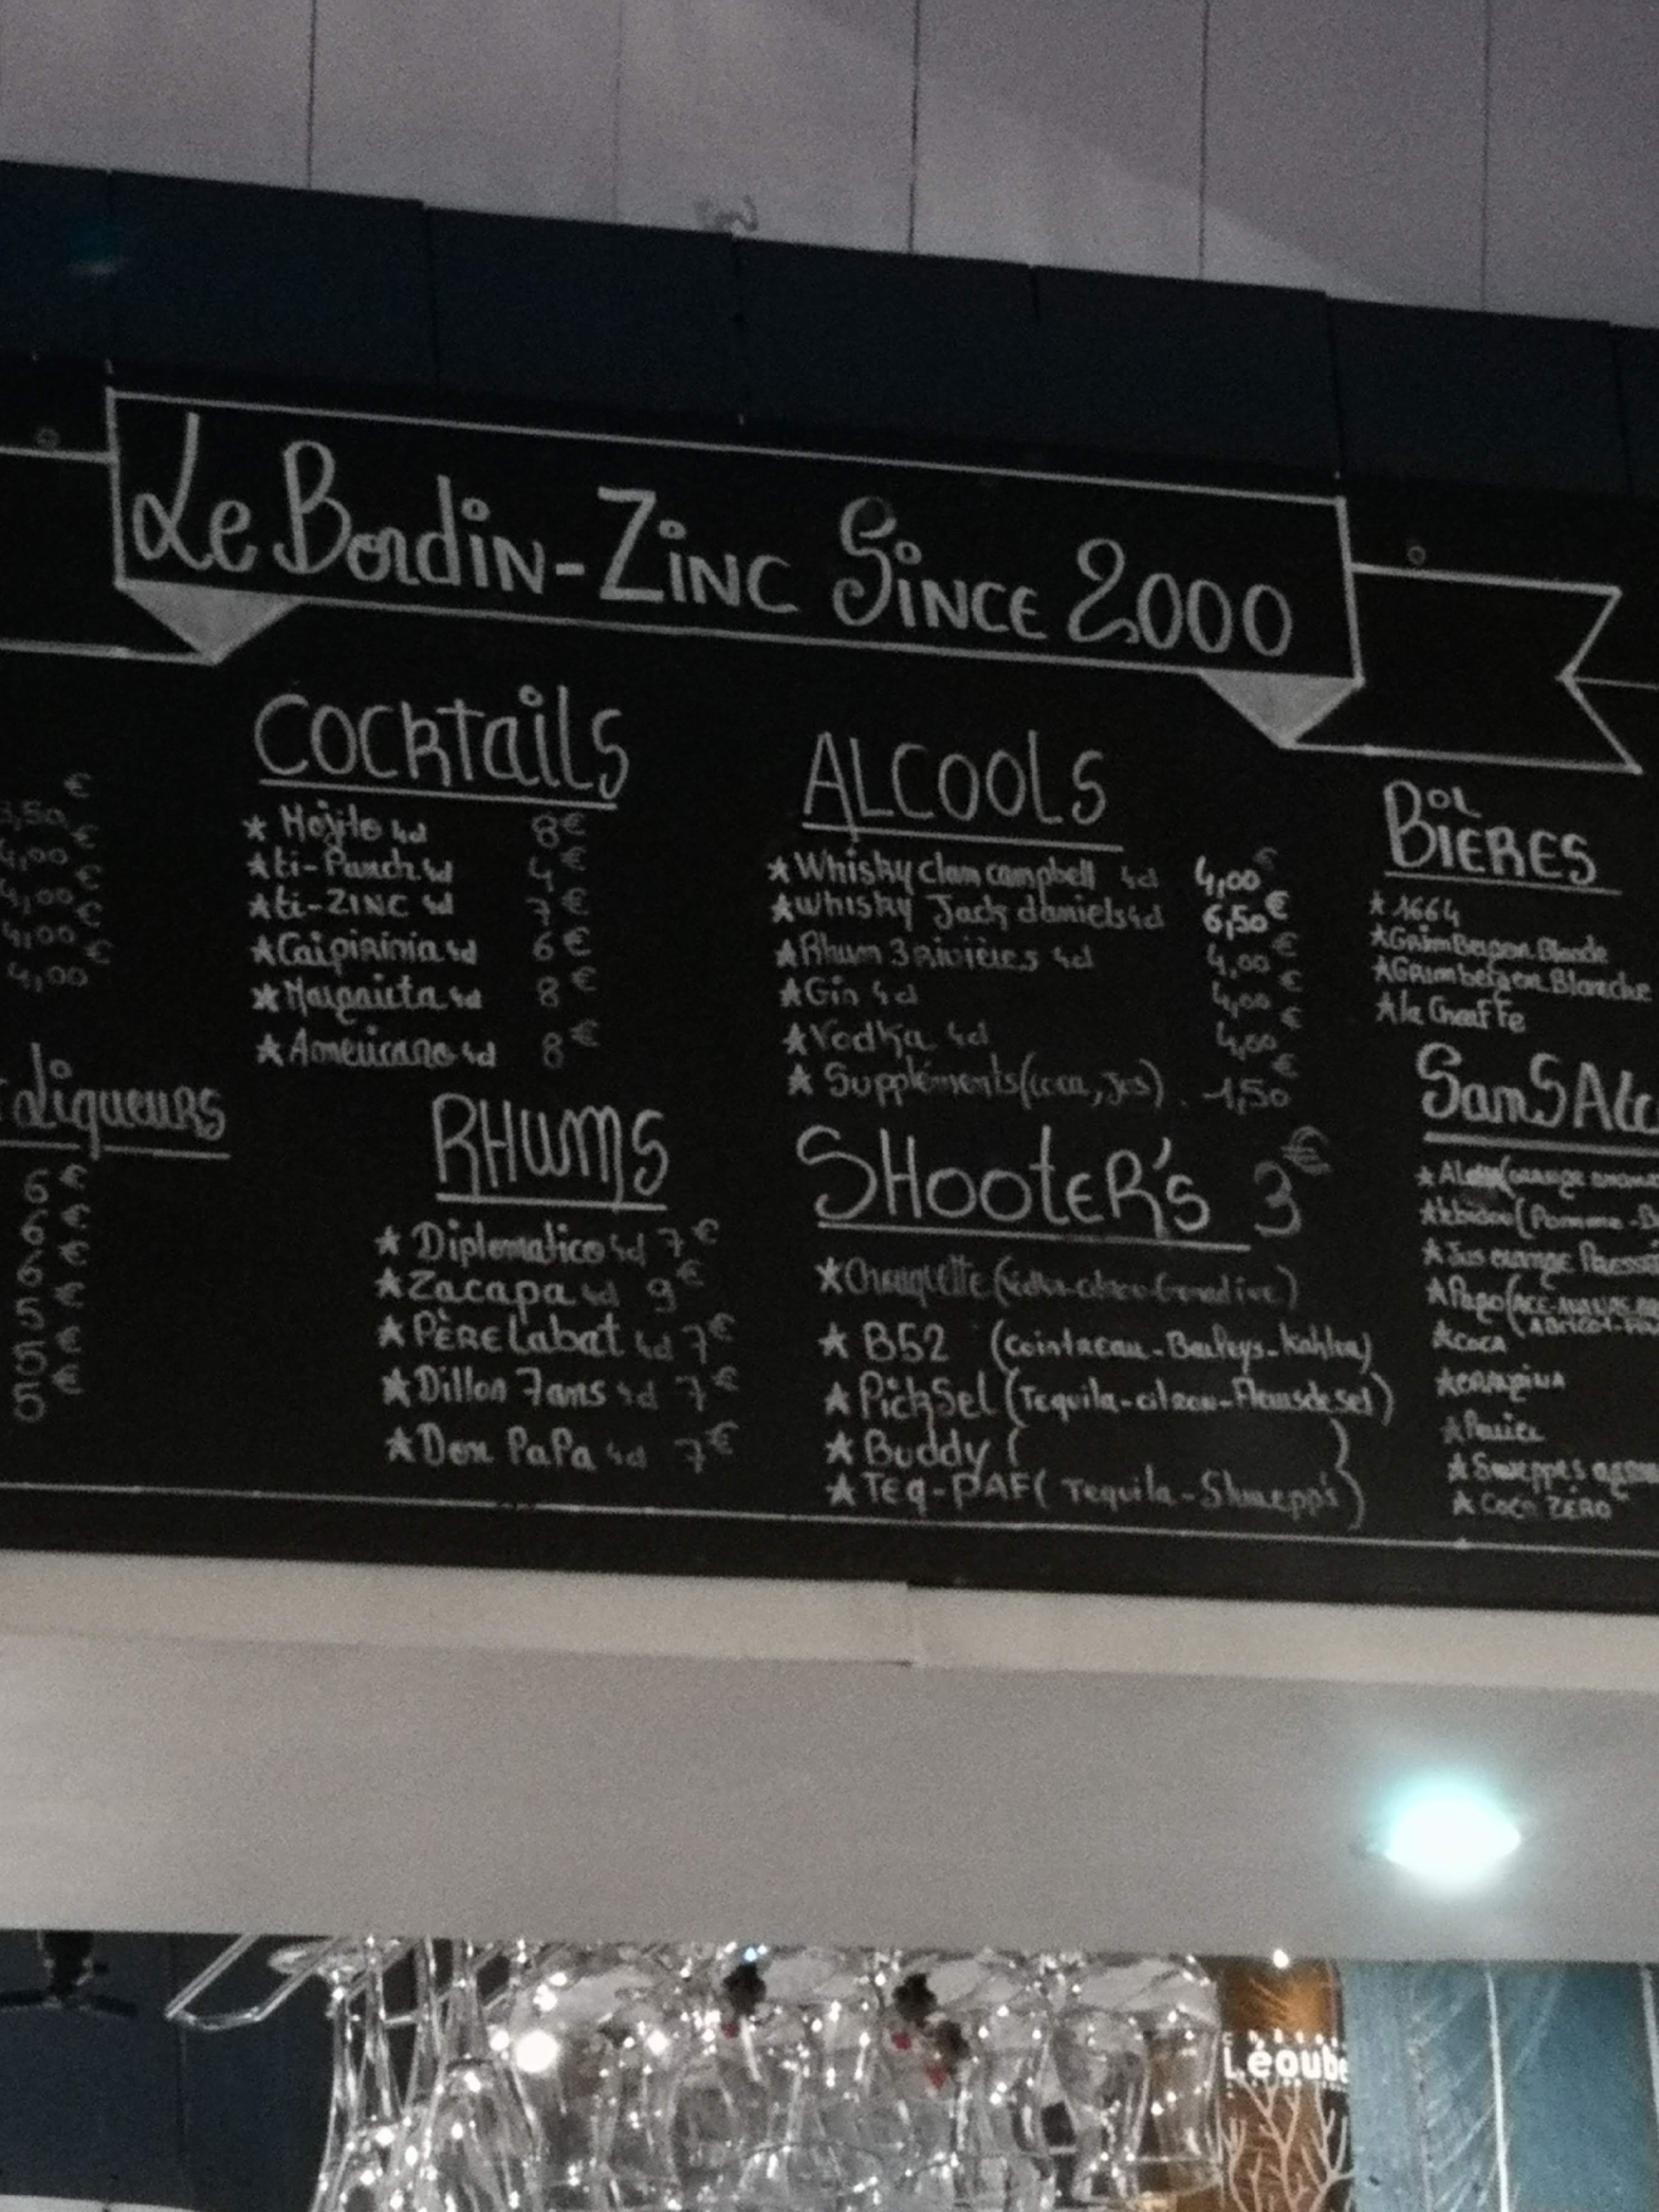 Le Bordin-Zinc Since 2000
3,50 €
4,00 €
4,00 €
4,00 €
4,00 €
Liqueurs
6 €
6 €
6 €
5 €
5 €
5 €
Cocktails
★ Mojito 4cl 8€
★ ti-Punch 4cl 4€
★ ti-ZINC 4cl 7€
★ Caipirinia 4cl 6€
★ Margarita 4cl 8€
★ Americano 4cl 8€
RHums
★ Diplomatico 4cl 7€
★ Zacapa 4cl 9€
★ PÈRE Labat 4cl 7€
★ Dillon 7ans 4cl 7€
★ Don PaPa 4cl 7€
ALCOOLS
★ Whisky clan campbell 4cl 4,00€
★ whisky Jack daniels 4cl 6,50€
★ Rhum 3 Rivières 4cl 4,00€
★ Gin 4cl 4,00€
★ Vodka 4cl 4,00€
★ Suppléments (coca, jus) 1,50€
SHooteR's 3€
★ B52 (Cointreau-Baileys-Kahlua)
★ PickSel (Tequila-citron-Fleur de sel)
★ Buddy ( )
★ Teq-PAF (Tequila-Shwepp's)
BIERES
★ 1664
★ Grimbergen Blonde
★ Grimbergen Blanche
★ la Chouffe
SanS Alc
★ Jus orange Pressé
★ Pago
★ COCA
★ ORANGINA
★ Perrier
★ COCA ZÉRO
Léoube